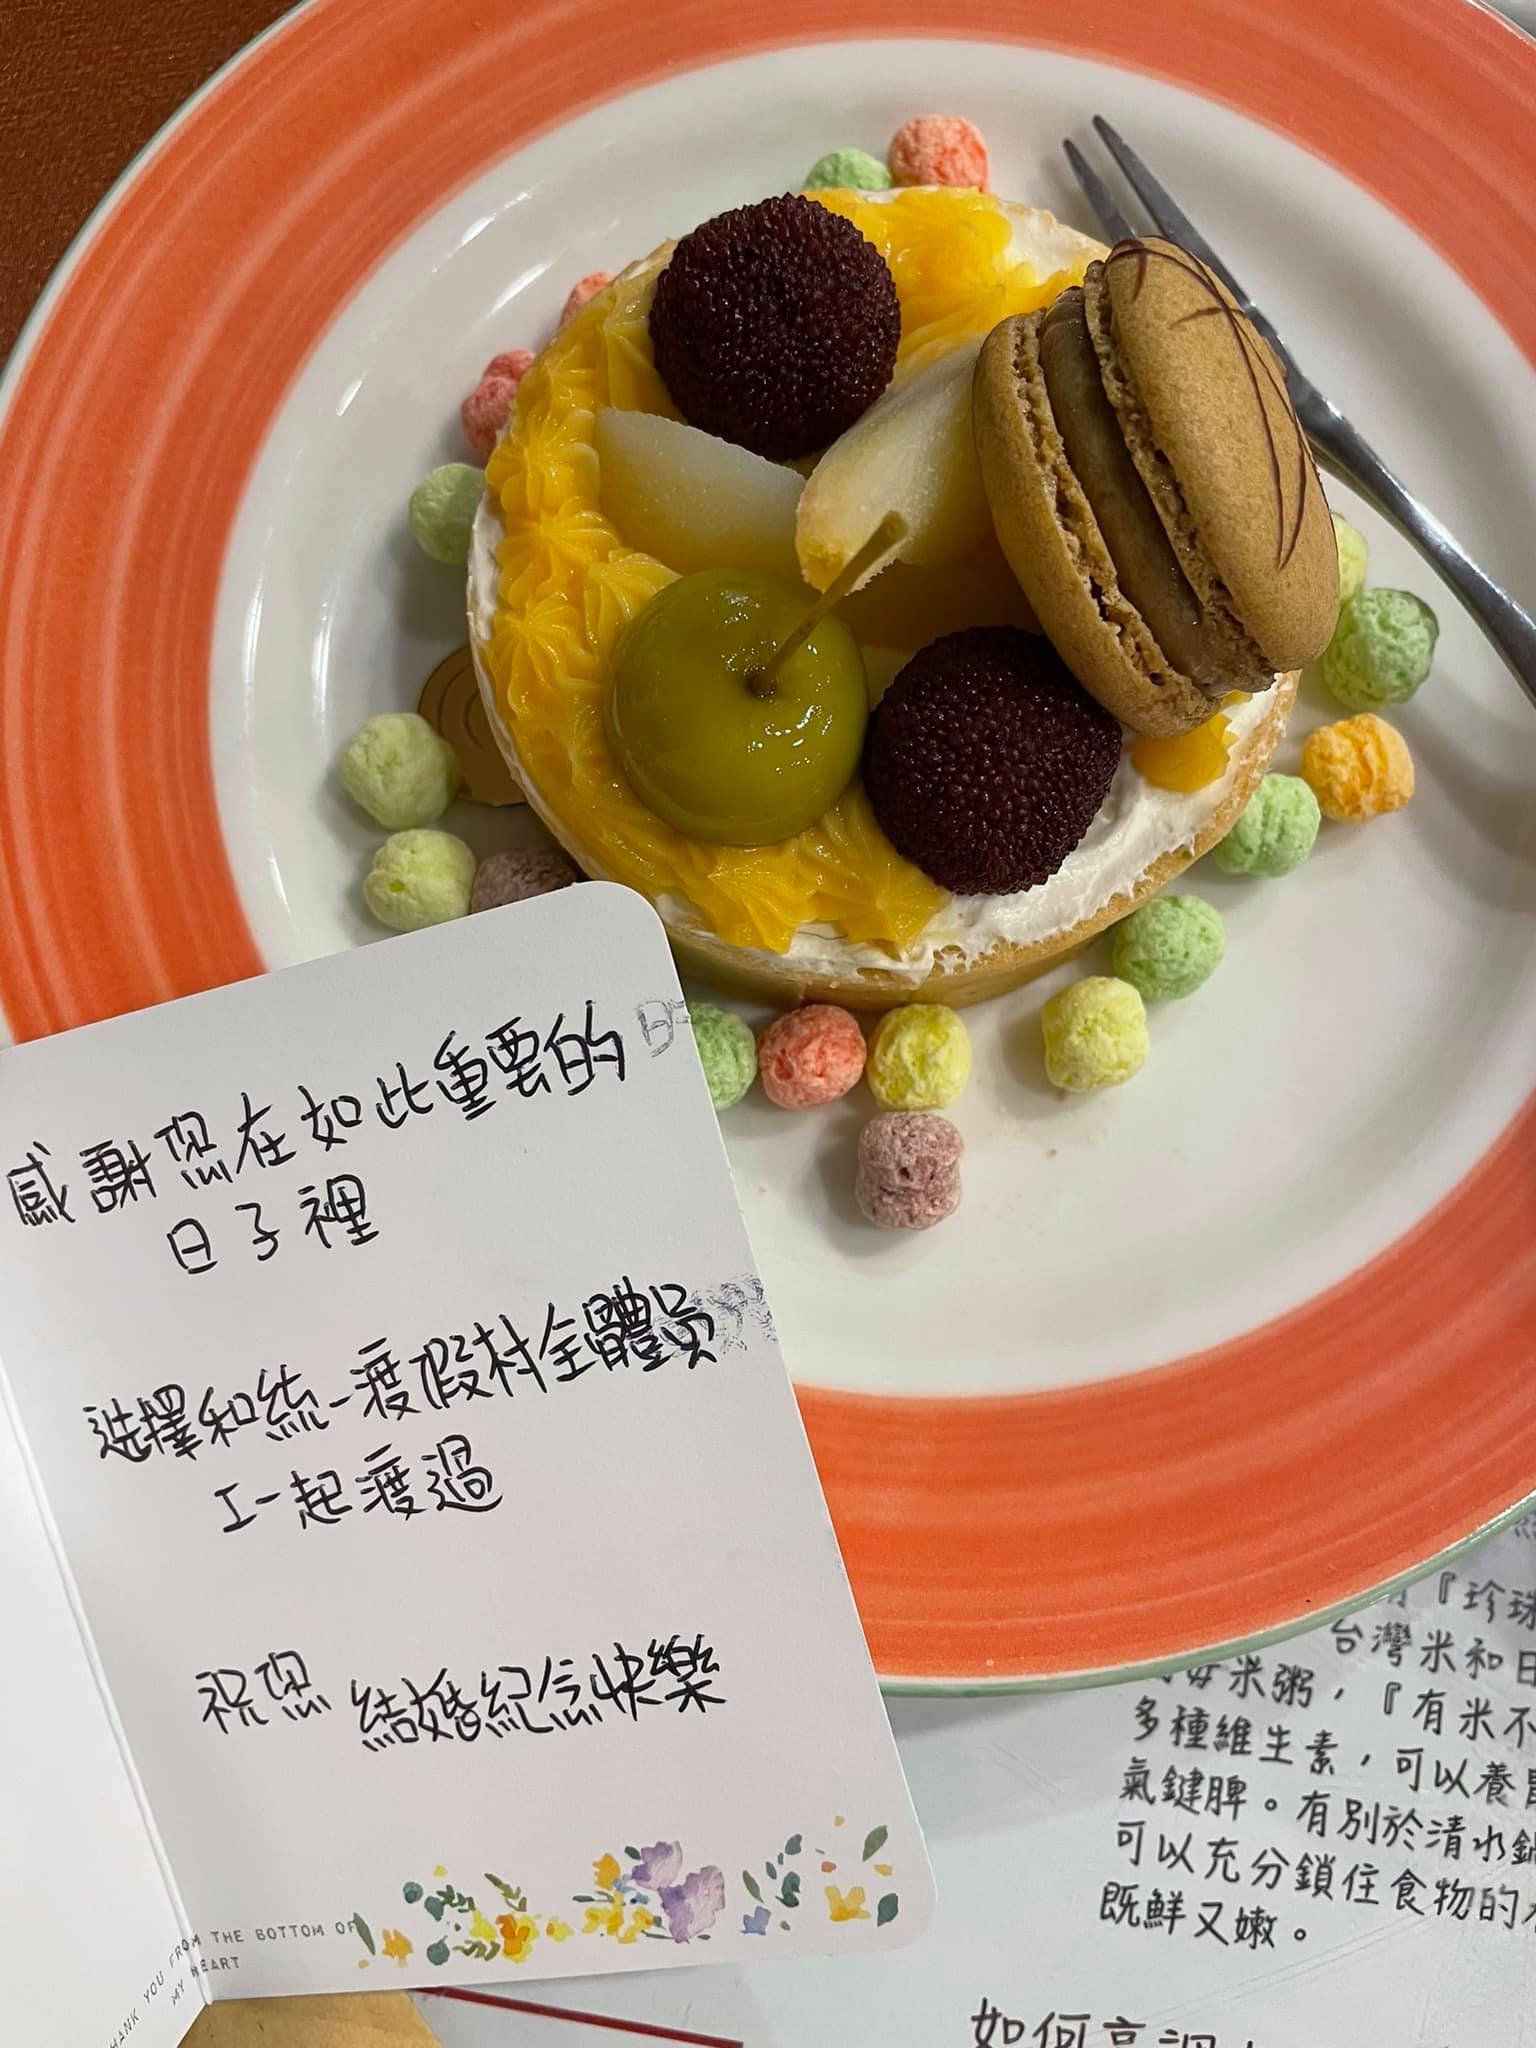 感謝您在如此重要的
日子裡
選擇和統一渡假村全體員
工一起渡過
祝您 結婚紀念快樂
THANK YOU FROM THE BOTTOM OF
MY HEART
『珍珠
台灣米和日
米粥，『有米不
多種維生素，可以養胃
氣鍵脾。有別於清水鍋
可以充分鎖住食物的
既鮮又嫩。
如何